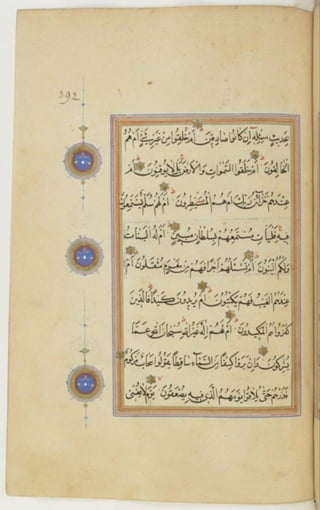 292
بحديث مثله ان كانوا صادقين ام خلقوا من غير شيء ام هم
الخالقون ام خلقوا السموات والارض بل لا يوقنون ام
عندهم خزائن ربك ام هم المصيطرون ام لهم سلم يستمعون
فيه فليات مستمعهم بسلطان مبين ام له البنات
ولكم البنون ام تسئلهم اجرا فهم من مغرم مثقلون ام
عندهم الغيب فهم يكتبون ام يريدون كيدا فالذين
كفروا هم المكيدون ام لهم اله غير الله سبحان الله عما
يشركون وان يروا كسفا من السماء ساقطا يقولوا سحاب مركوم
فذرهم حتى يلاقوا يومهم الذي فيه يصعقون يوم لا يغني